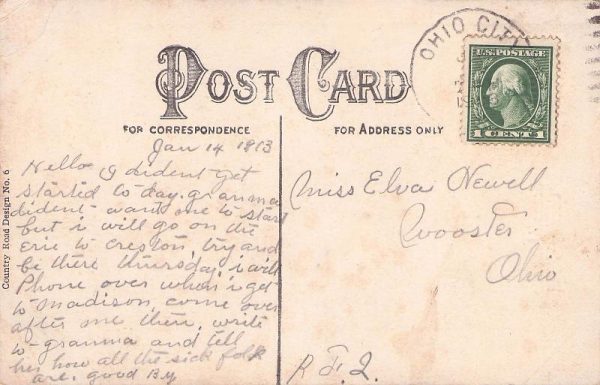 POST CARD
OHIO CITY
U.S. POSTAGE
1 CENT 1
FOR CORRESPONDENCE
FOR ADDRESS ONLY
Jan 14 1913
Hello I dident get
started to day, granma
dident want me to start
but i will go on the
erie to creston, try and
be there thursday, i will
Phone over when i get
to madison, come over
after me then, write
to granma and tell
her how all the sick folk
are, good By
Miss Elva Newell
Wooster
Ohio
R F 2.
Country Road Design No. 6